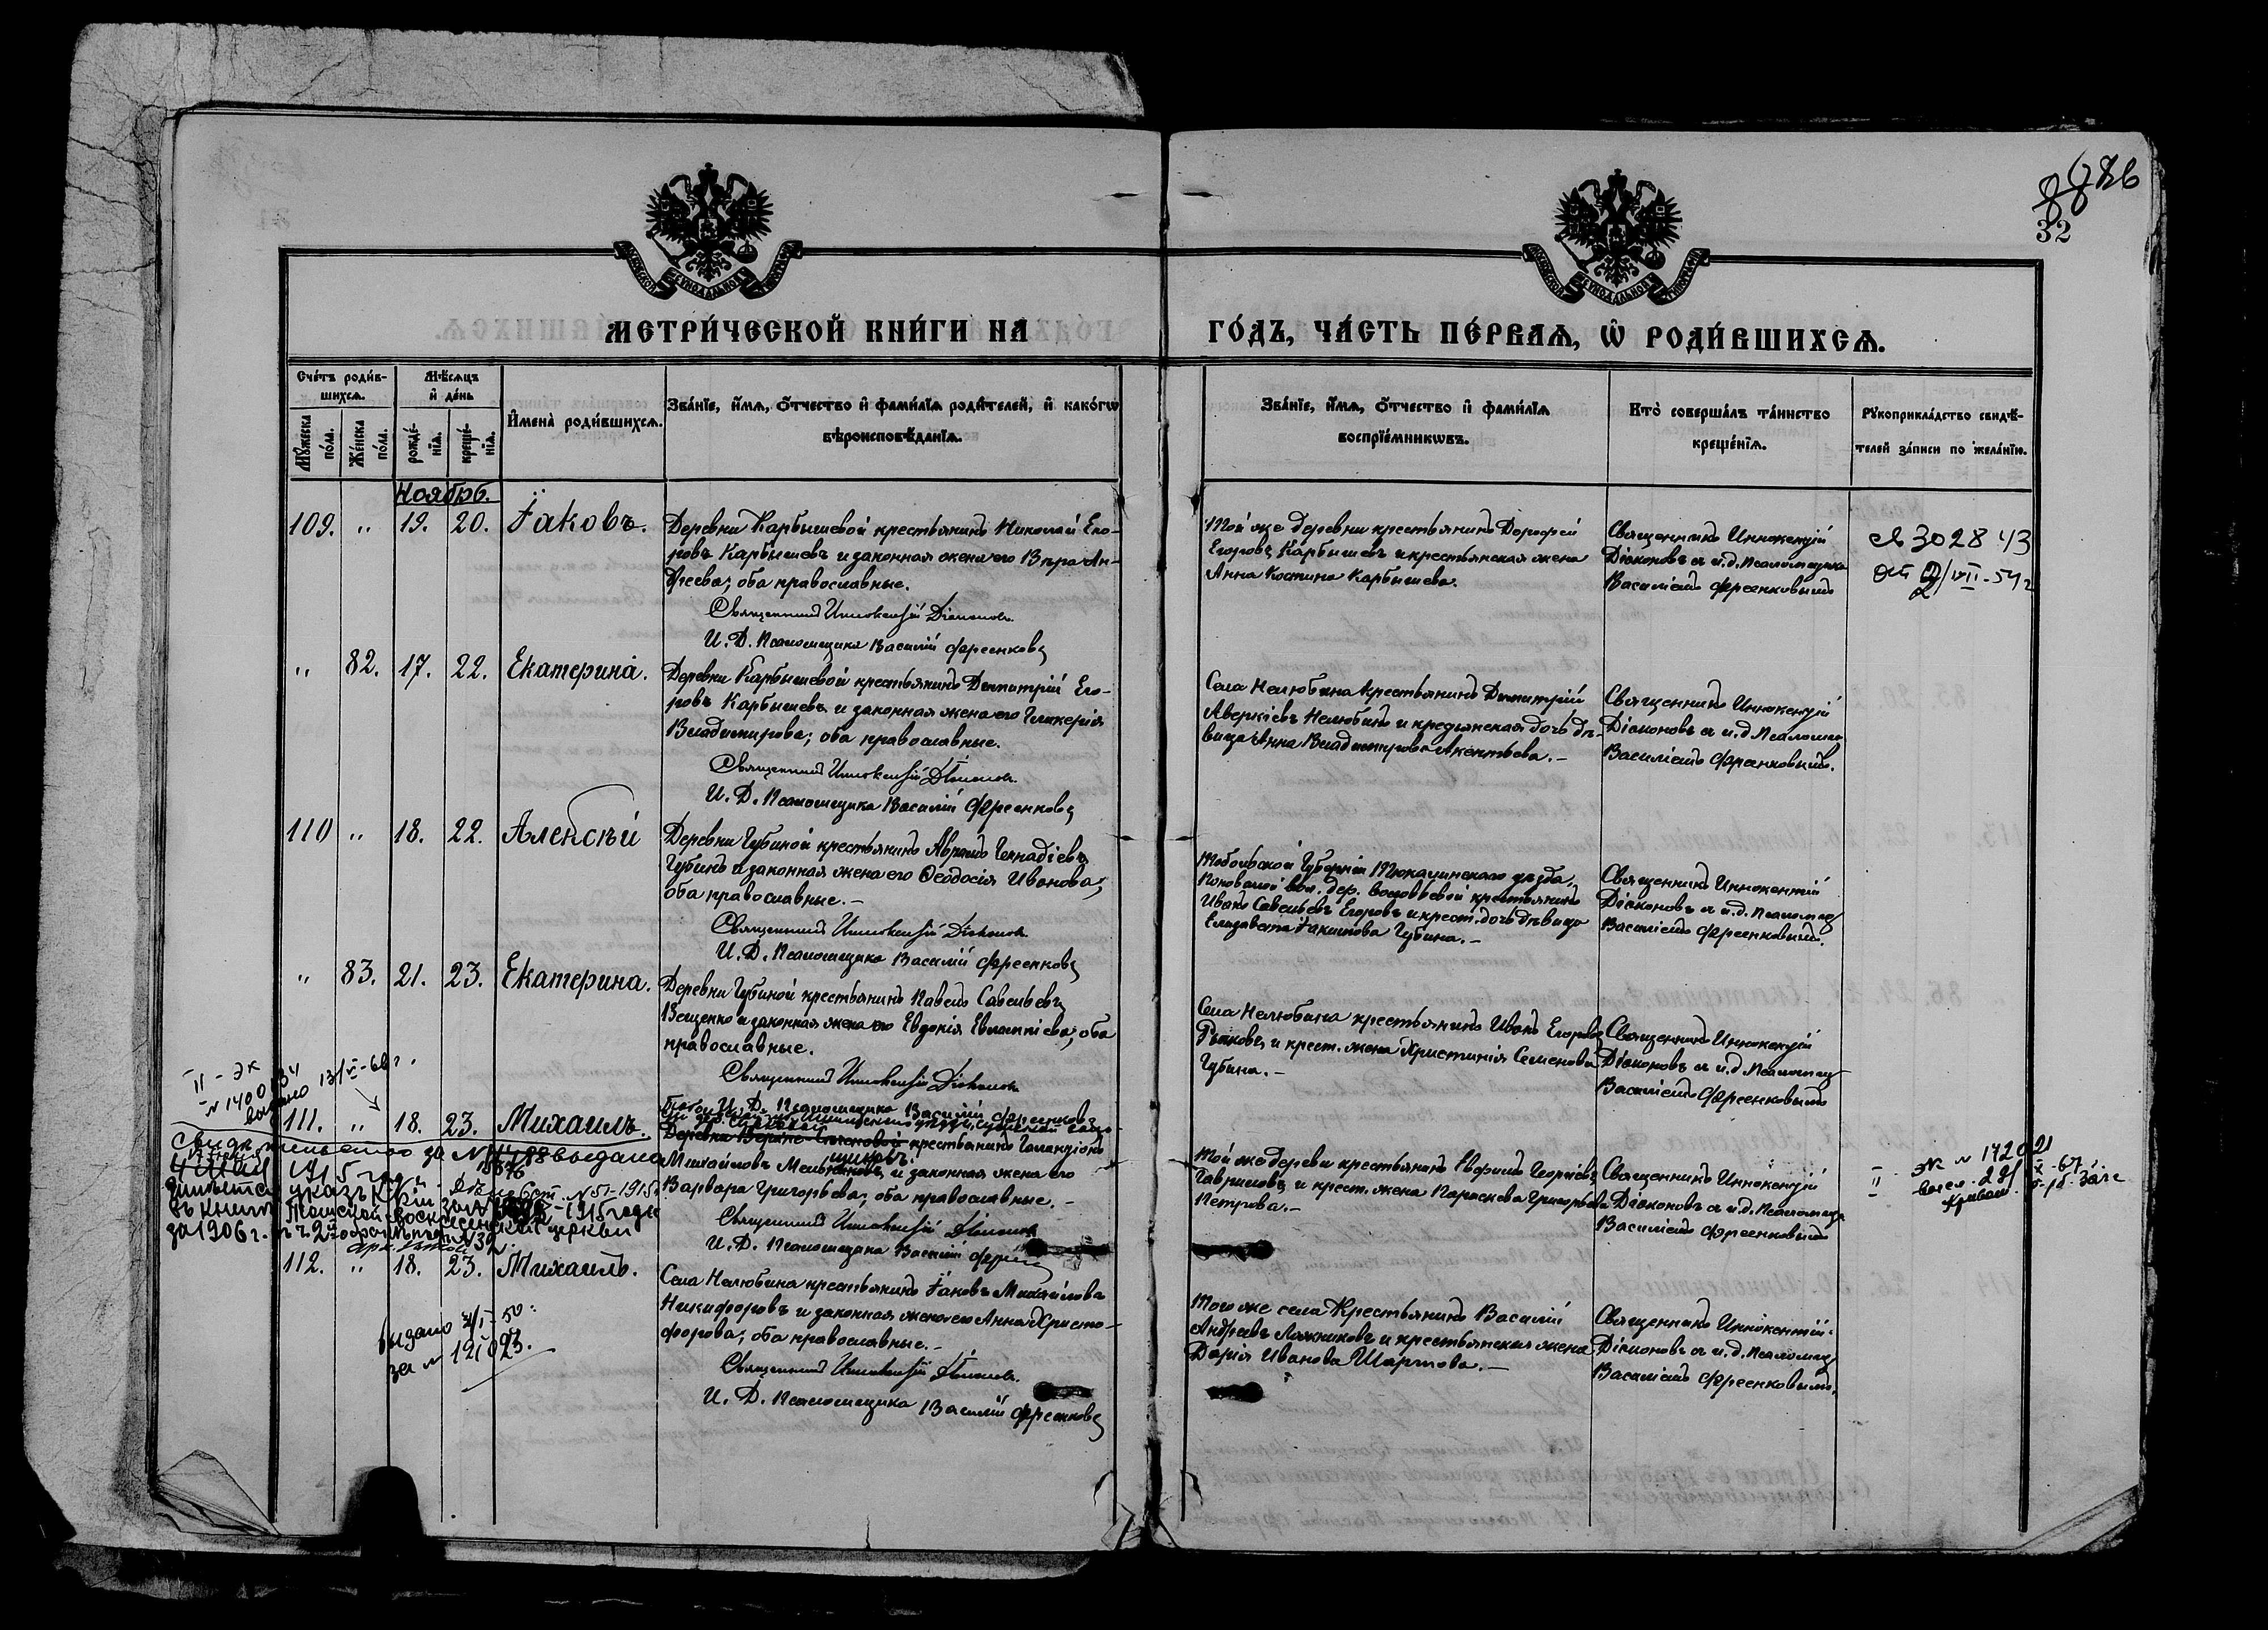 32
МЕТРИ́ЧЕСКОЙ КНИ́ГИ НА ГО́ДЪ, ЧА́СТЬ ПЕ́РВАѦ, Ѡ҆ РОДИ́ВШИХСѦ.
Сче́тъ роди́в-
шихсѧ.
Мѣ́сѧцъ
и҆ де́нь
Мꙋ́жеска
по́ла.
Же́нска
по́ла.
рожде́-
нїѧ.
креще́-
нїѧ.
И҆мена̀ роди́вшихсѧ.
Зва́нїе, и҆́мѧ, ѻ҆́тчество и҆ фами́лїѧ роди́телей, и҆ како́гѡ
вѣроисповѣ́данїѧ.
Зва́нїе, и҆́мѧ, ѻ҆́тчество и҆ фами́лїѧ
воспрїе́мникѡвъ.
Кто̀ соверша́лъ та́инство
креще́нїѧ.
Рꙋкоприкла́дство свидѣ́-
телей за́писи по жела́нїю.
Ноябрь.
109. " 19. 20. Іаковъ.
Деревни Карбышевой крестьянинъ Николай Его-
ровъ Карбышевъ и законная жена его Вѣра Ан-
дреева; оба православные.
Священникъ Иннокентій Діаконовъ
И. Д. Псаломщика Василій Фреенковъ
Той же деревни крестьянинъ Дорофей
Егоровъ Карбышевъ и крестьянская жена
Анна Костина Карбышева.
Священникъ Иннокентій
Діаконовъ съ и.д. Псаломщика
Василіемъ Фреенковымъ
" 82. 17. 22. Екатерина.
Деревни Карбышевой крестьянинъ Димитрій Его-
ровъ Карбышевъ и законная жена его Гликерія
Владимирова; оба православные.
Священникъ Иннокентій Діаконовъ
И. Д. Псаломщика Василій Фреенковъ
Села Нелюбина крестьянинъ Димитрій
Аверкіевъ Нелюбинъ и крестьянская дочь дѣ-
вица Анна Владимирова Акентьева. –
Священникъ Иннокентій
Діаконовъ съ и.д. Псаломщ
Василіемъ Фреенковымъ.
110 " 18. 22. Алексѣй
Деревни Губиной крестьянинъ Абрамъ Геннадіевъ
Губинъ и законная жена его Ѳеодосія Иванова;
оба православные. –
Священникъ Иннокентій Діаконовъ
И. Д. Псаломщика Василій Фреенковъ
Тобольской Губерніи Тюкалинскаго уѣзда
вол. дер. крестьянинъ
Иванъ Савельевъ Егоровъ и крест. дочь дѣвица
Елизавета Іакимова Губина. –
Священникъ Иннокентій
Діаконовъ съ и.д. Псаломщ
Василіемъ Фреенковымъ.
" 83. 21. 23. Екатерина.
Деревни Губиной крестьянинъ Павелъ Савельевъ
Ващенко и законная жена его Евдокія Евлампіева; оба
православные.
Священникъ Иннокентій Діаконовъ
И. Д. Псаломщика Василій Фреенковъ
Села Нелюбина крестьянинъ Иванъ Егоровъ
и крест. жена Христинія Семенова
Губина. –
Священникъ Иннокентій
Діаконовъ съ и.д. Псаломщ
Василіемъ Фреенковымъ
111. " 18. 23. Михаилъ.
крестьянинъ
Михайловъ и законная жена его
Варвара Григорьева; оба православные. –
Священникъ Иннокентій Діаконовъ
И. Д. Псаломщика Василій
Той же деревни крестьянинъ Георгіевъ
Гавриловъ и крест. жена Параскева Григорьева
Петрова. –
Священникъ Иннокентій
Діаконовъ съ и.д. Псаломщ
Василіемъ Фреенковымъ
Свидѣтельство за № выдано
1915
за 1906 г.
112. " 18. 23. Михаилъ.
Села Нелюбина крестьянинъ Іаковъ Михайловъ
Никифоровъ и законная жена его Анна Христо-
форова; оба православные. –
Священникъ Иннокентій Діаконовъ
И. Д. Псаломщика Василій Фреенковъ
Того же села Крестьянинъ Василій
Андреевъ и крестьянская жена
Дарія Иванова
Священникъ Иннокентій
Діаконовъ съ и.д. Псаломщ
Василіемъ Фреенковымъ.
выдано
за № 121093.